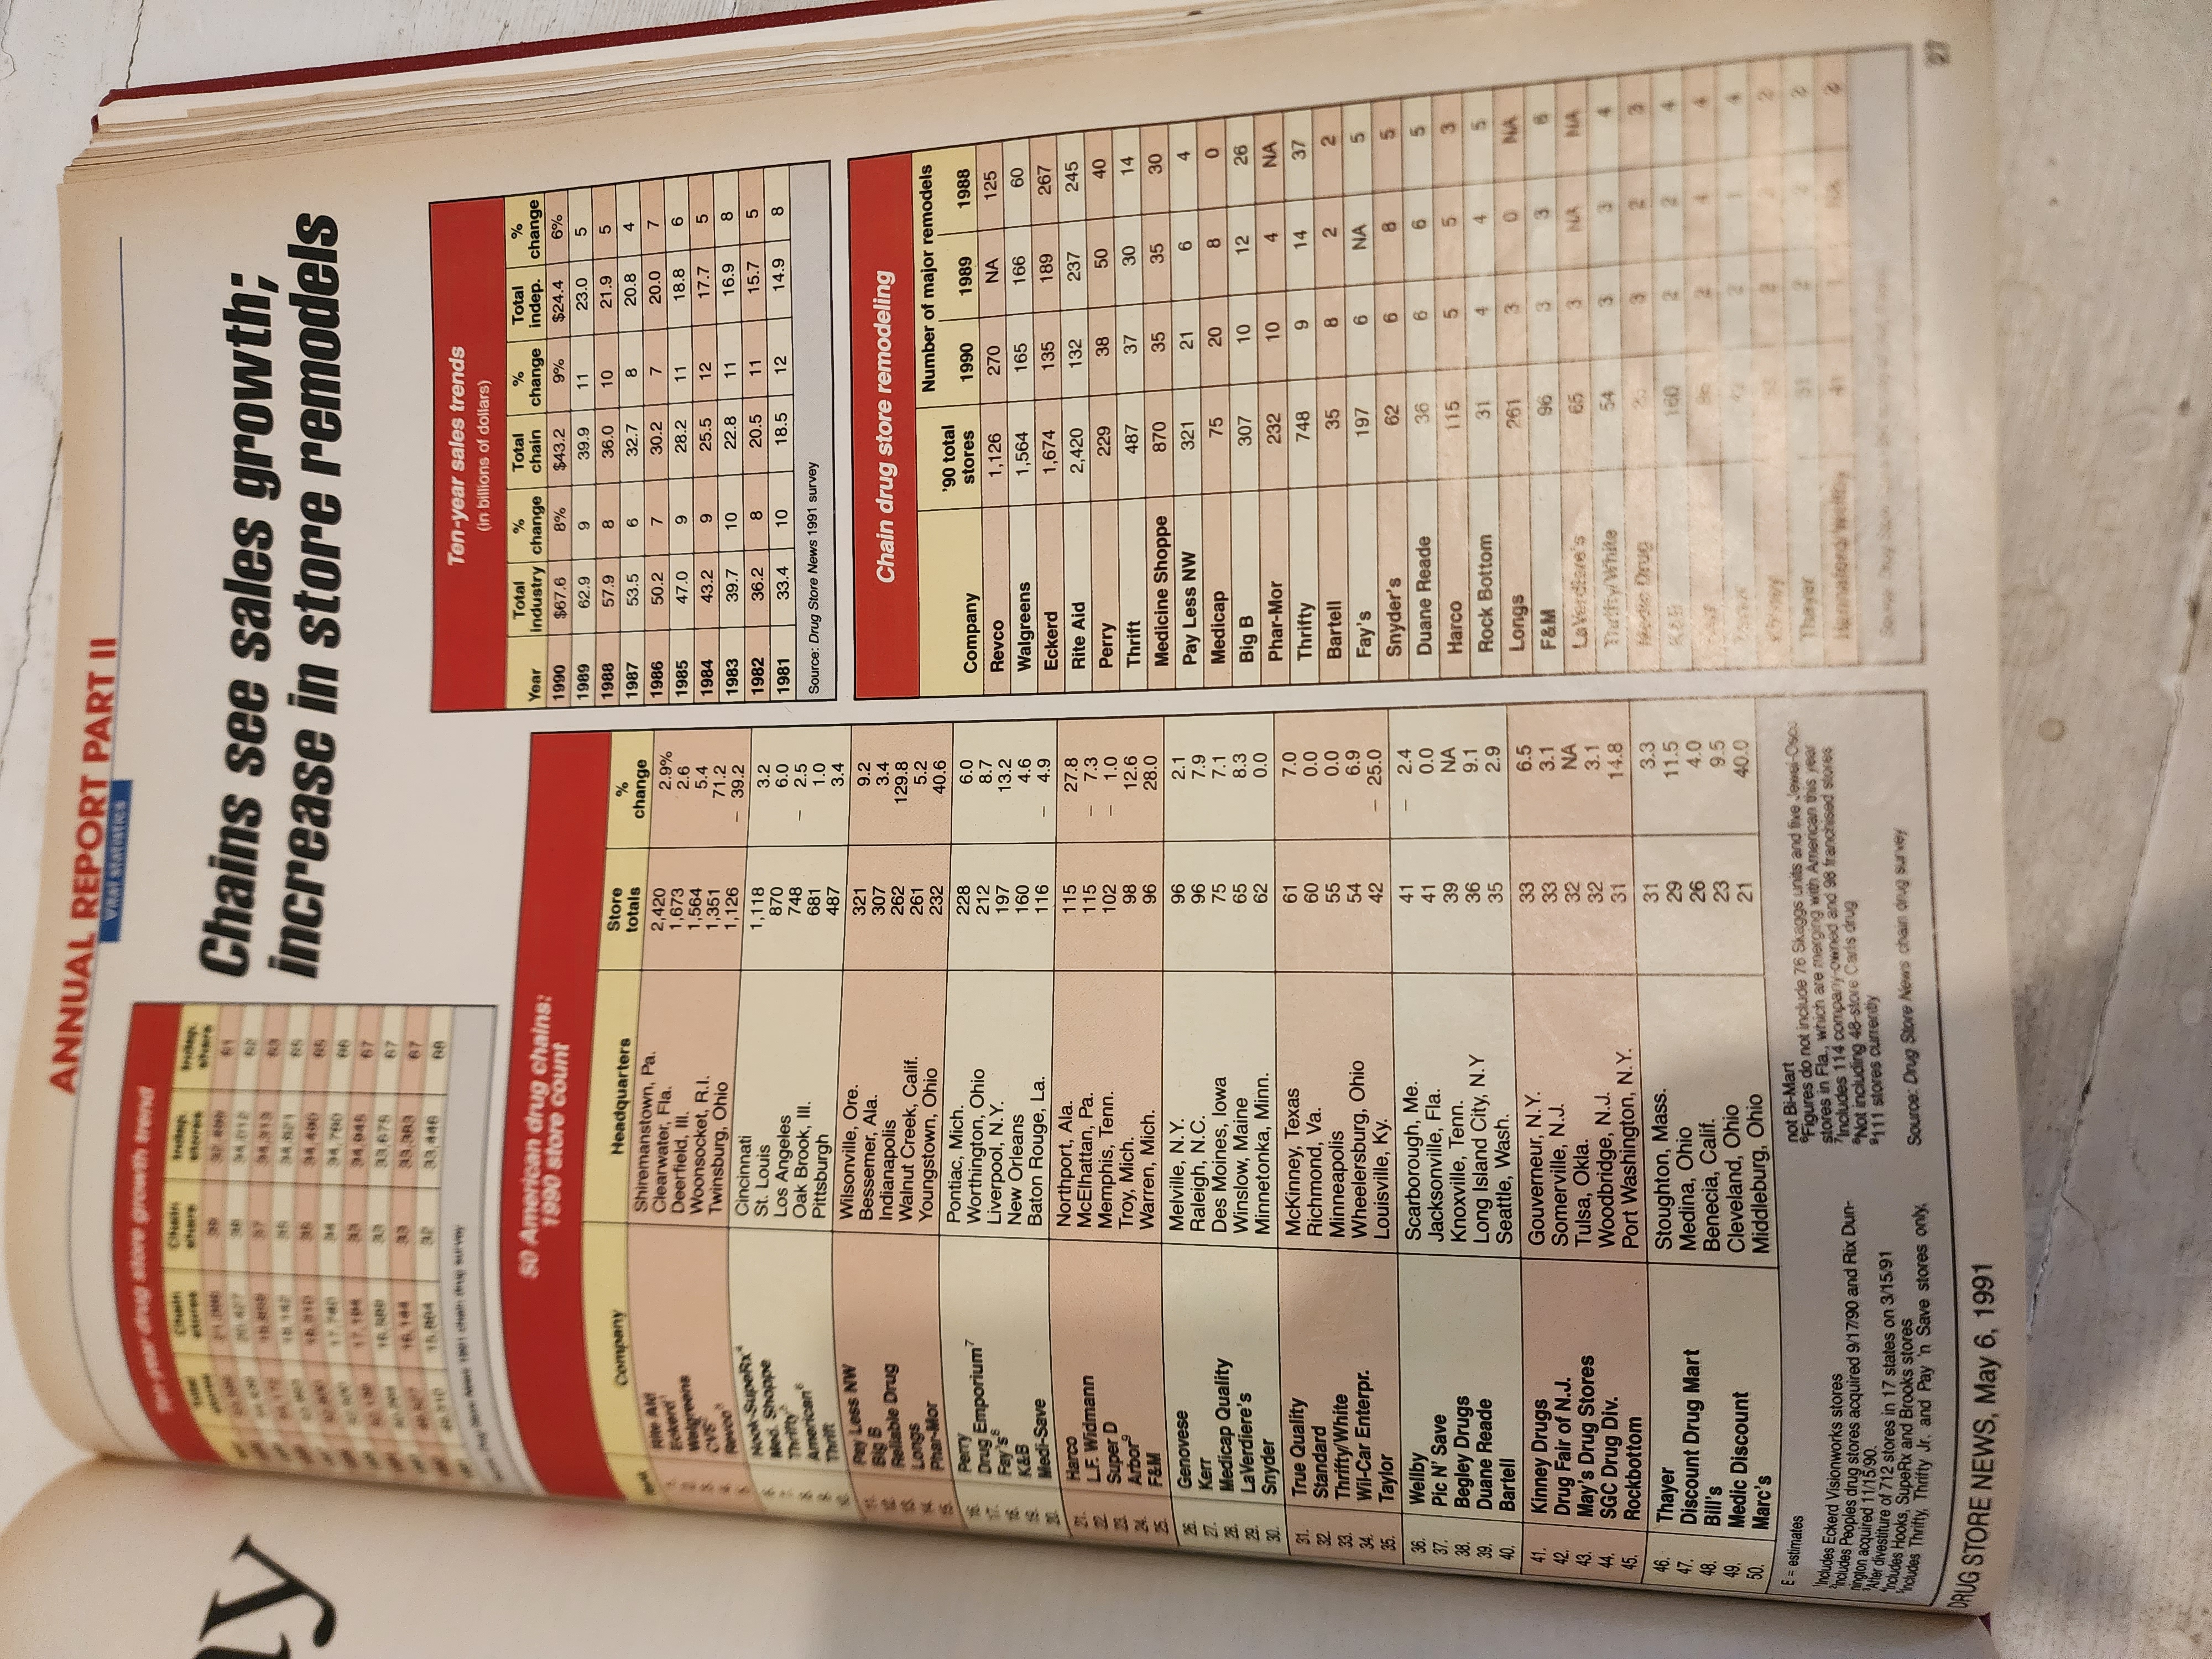 ay
ANNUAL REPORT PART II
VITAL STATISTICS
Chains see sales growth;
increase in store remodels
Ten-year drug store growth trend
Total stores Chain stores Chain share Indep. stores Indep. share
39 61
38 62
37 63
35 65
35 65
34 66
33 67
33 67
33 67
32 68
50 American drug chains:
1990 store count
Rank Company Headquarters Store totals % change
Rite Aid Shiremanstown, Pa. 2,420 2.9%
Eckerd¹ Clearwater, Fla. 1,673 2.6
Walgreens Deerfield, Ill. 1,564 5.4
CVS² Woonsocket, R.I. 1,351 71.2
Revco³ Twinsburg, Ohio 1,126 – 39.2
Hook-SupeRx⁴ Cincinnati 1,118 3.2
Med. Shoppe St. Louis 870 6.0
Thrifty⁵ Los Angeles 748 – 2.5
American⁶ Oak Brook, Ill. 681 1.0
Thrift Pittsburgh 487 3.4
11. Pay Less NW Wilsonville, Ore. 321 9.2
12. Big B Bessemer, Ala. 307 3.4
13. Reliable Drug Indianapolis 262 129.8
14. Longs Walnut Creek, Calif. 261 5.2
15. Phar-Mor Youngstown, Ohio 232 40.6
16. Perry Pontiac, Mich. 228 6.0
17. Drug Emporium⁷ Worthington, Ohio 212 8.7
18. Fay's⁸ Liverpool, N.Y. 197 13.2
19. K&B New Orleans 160 4.6
20. Medi-Save Baton Rouge, La. 116 – 4.9
21. Harco Northport, Ala. 115 27.8
22. L.F. Widmann McElhattan, Pa. 115 – 7.3
23. Super D Memphis, Tenn. 102 – 1.0
24. Arbor⁹ Troy, Mich. 98 12.6
25. F&M Warren, Mich. 96 28.0
26. Genovese Melville, N.Y. 96 2.1
27. Kerr Raleigh, N.C. 96 7.9
28. Medicap Quality Des Moines, Iowa 75 7.1
29. LaVerdiere's Winslow, Maine 65 8.3
30. Snyder Minnetonka, Minn. 62 0.0
31. True Quality McKinney, Texas 61 7.0
32. Standard Richmond, Va. 60 0.0
33. Thrifty/White Minneapolis 55 0.0
34. Wil-Car Enterpr. Wheelersburg, Ohio 54 6.9
35. Taylor Louisville, Ky. 42 – 25.0
36. Wellby Scarborough, Me. 41 – 2.4
37. Pic N' Save Jacksonville, Fla. 41 0.0
38. Begley Drugs Knoxville, Tenn. 39 NA
39. Duane Reade Long Island City, N.Y 36 9.1
40. Bartell Seattle, Wash. 35 2.9
41. Kinney Drugs Gouverneur, N.Y. 33 6.5
42. Drug Fair of N.J. Somerville, N.J. 33 3.1
43. May's Drug Stores Tulsa, Okla. 32 NA
44. SGC Drug Div. Woodbridge, N.J. 32 3.1
45. Rockbottom Port Washington, N.Y. 31 14.8
46. Thayer Stoughton, Mass. 31 3.3
47. Discount Drug Mart Medina, Ohio 29 11.5
48. Bill's Benecia, Calif. 26 4.0
49. Medic Discount Cleveland, Ohio 23 9.5
50. Marc's Middleburg, Ohio 21 40.0
E = estimates
¹Includes Eckerd Visionworks stores
²Includes Peoples drug stores acquired 9/17/90 and Rix Dun-
nington acquired 11/15/90.
³After divestiture of 712 stores in 17 states on 3/15/91
⁴Includes Hooks, SupeRx and Brooks stores
⁵Includes Thrifty, Thrifty Jr. and Pay 'n Save stores only,
not Bi-Mart
⁶Figures do not include 76 Skaggs units and five Jewel-Osco
stores in Fla., which are merging with American this year
⁷Includes 114 company-owned and 98 franchised stores
⁸Not including 48-store Carls drug
⁹111 stores currently
Source: Drug Store News chain drug survey
Ten-year sales trends
(in billions of dollars)
Year Total industry % change Total chain % change Total indep. % change
1990 $67.6 8% $43.2 9% $24.4 6%
1989 62.9 9 39.9 11 23.0 5
1988 57.9 8 36.0 10 21.9 5
1987 53.5 6 32.7 8 20.8 4
1986 50.2 7 30.2 7 20.0 7
1985 47.0 9 28.2 11 18.8 6
1984 43.2 9 25.5 12 17.7 5
1983 39.7 10 22.8 11 16.9 8
1982 36.2 8 20.5 11 15.7 5
1981 33.4 10 18.5 12 14.9 8
Source: Drug Store News 1991 survey
Chain drug store remodeling
Number of major remodels
Company '90 total stores 1990 1989 1988
Revco 1,126 270 NA 125
Walgreens 1,564 165 166 60
Eckerd 1,674 135 189 267
Rite Aid 2,420 132 237 245
Perry 229 38 50 40
Thrift 487 37 30 14
Medicine Shoppe 870 35 35 30
Pay Less NW 321 21 6 4
Medicap 75 20 8 0
Big B 307 10 12 26
Phar-Mor 232 10 4 NA
Thrifty 748 9 14 37
Bartell 35 8 2 2
Fay's 197 6 NA 5
Snyder's 62 6 8 5
Duane Reade 36 6 6 5
Harco 115 5 5 3
Rock Bottom 31 4 4 5
Longs 261 3 0 NA
F&M 96 3 3 6
LaVerdiere's 65 3 NA NA
Thrifty/White 54 3 3 4
Medic Drug 3 2 3
K&B 160 2 2 4
2 4 4
2 1 4
2 2 2
Thayer 31 2 2 2
DRUG STORE NEWS, May 6, 1991